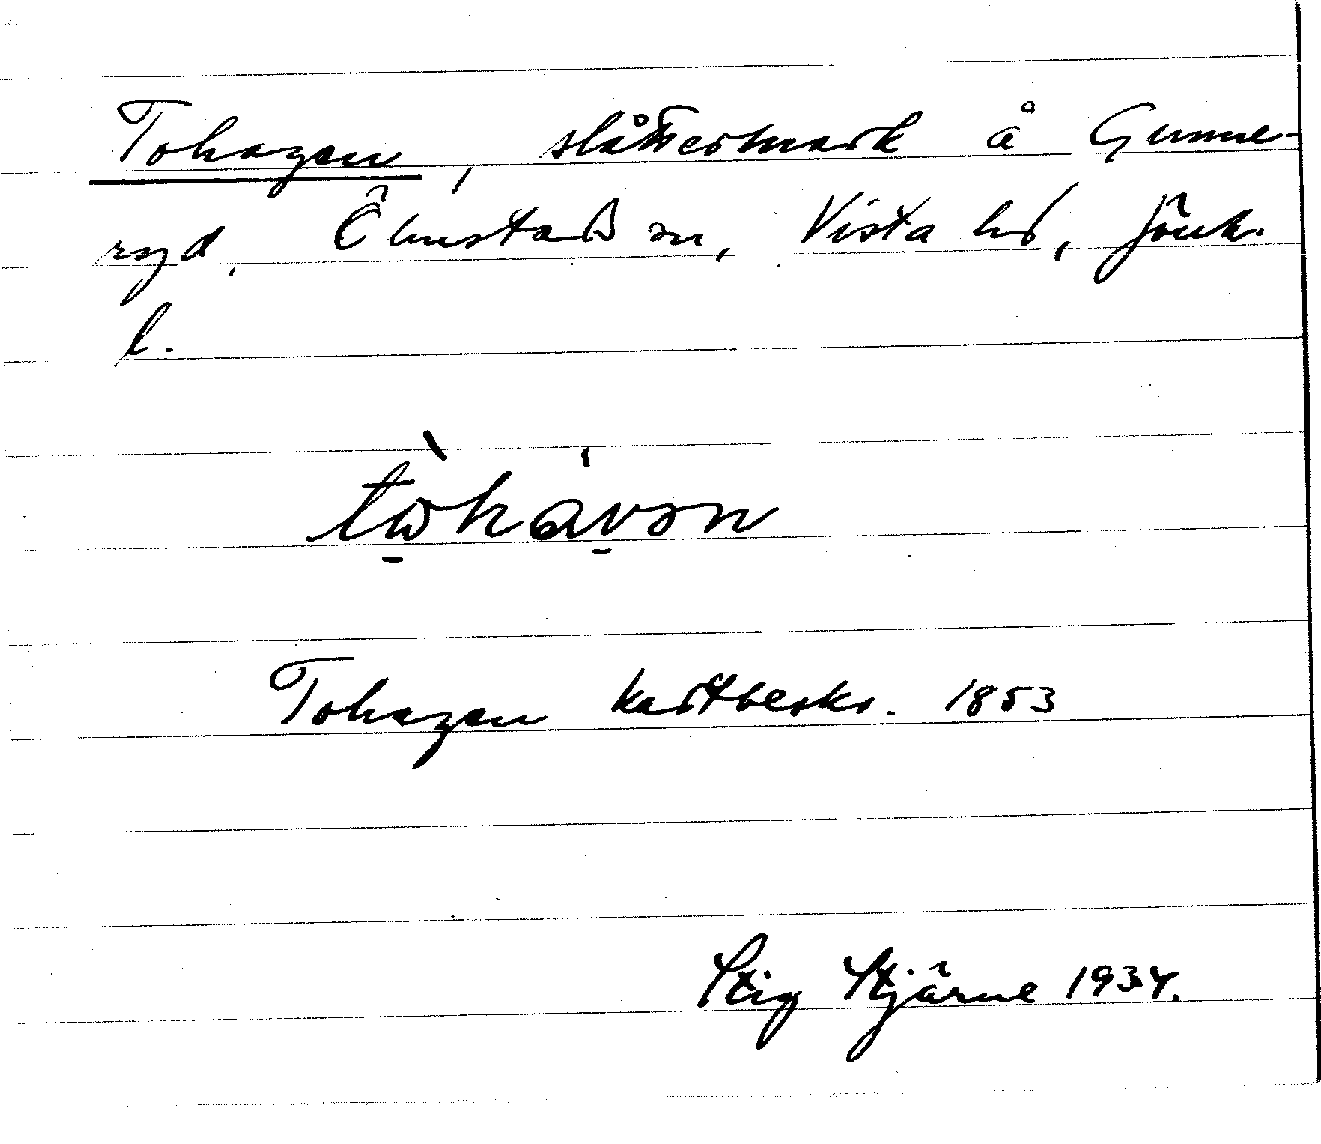 Tohagen, slåttermark å Gunne-
ryd, Ölmstad sn, Vista hd, Jönk.
l.
tὼhávən
Tohagen kartbeskr. 1853
Stig Stjärne 1934.